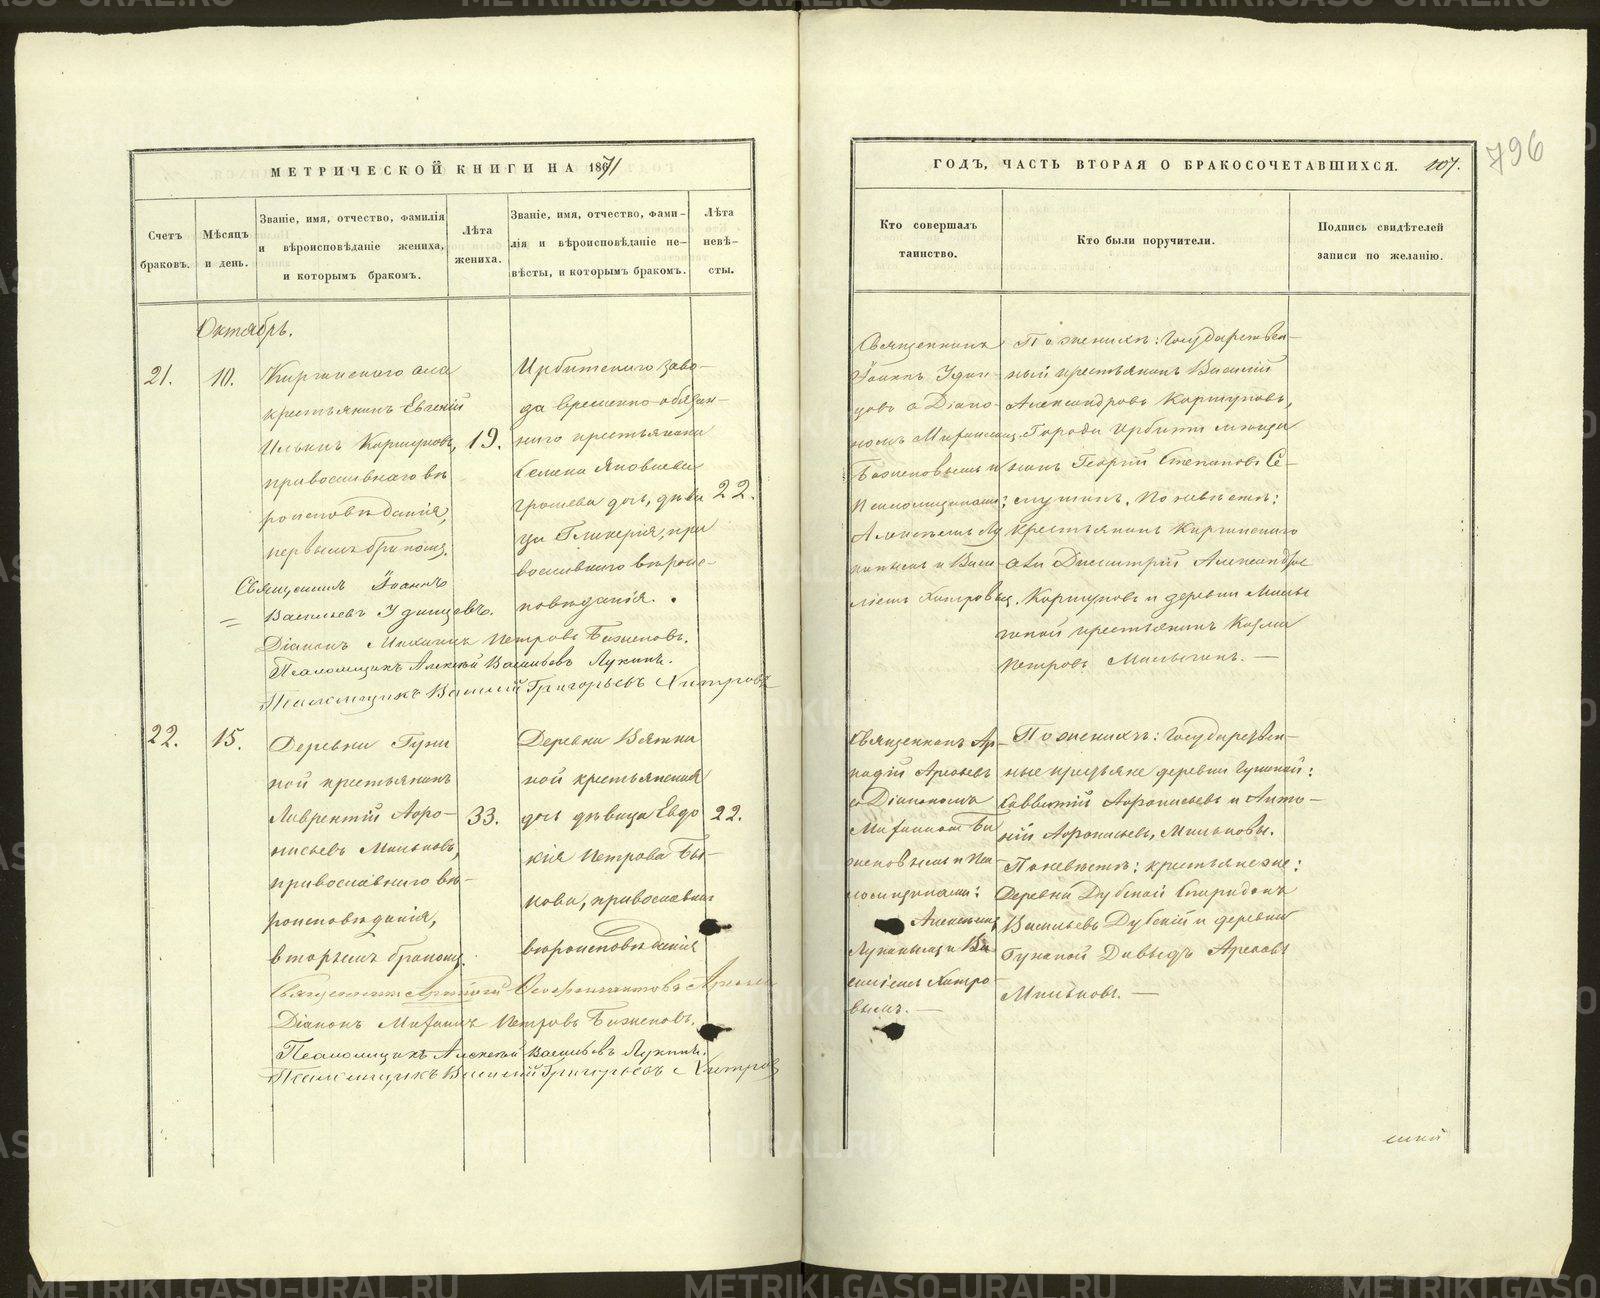 МЕТРИЧЕСКОЙ КНИГИ НА 1871
Счетъ браковъ.
Мѣсяцъ и день.
Званіе, имя, отчество, фамилія
и вѣроисповѣданіе жениха,
и которымъ бракомъ.
Лѣта
жениха.
Званіе, имя, отчество, фами-
лія и вѣроисповѣданіе не-
вѣсты, и которымъ бракомъ.
Лѣта
невѣ-
сты.
Октябрь.
21.
10.
Киргинскаго села
крестьянинъ Евгеній
Ильинъ Коршуновъ,
православнаго вѣ
роисповѣданія,
первымъ бракомъ.
19.
Ирбитскаго заво-
да временно-обязан-
наго крестьянина
Семена Яковлева
Грошева дочь, дѣви
ца Гликерія, пра
вославнаго вѣроис-
повѣданія.
22.
Священникъ Іоаннъ
Васильевъ Удинцевъ.
Діаконъ Михаилъ Петровъ Баженовъ.
Псаломщикъ Алексѣй Васильевъ Лукинъ.
Псаломщикъ Василій Григорьевъ Хитровъ
22.
15.
Деревни Гуни
ной крестьянинъ
Лаврентій Афро-
нисьевъ Мильковъ,
православнаго вѣ-
роисповѣданія,
вторымъ бракомъ.
33.
Деревни Вятки
ной крестьянская
дочь дѣвица Евдо
кія Петрова Бы-
кова, православнаго
вѣроисповѣданія
22.
Священникъ Аркадій Арефьевъ
Діаконъ Михаилъ Петровъ Баженовъ.
Псаломщикъ Алексѣй Васильевъ Лукинъ.
Псаломщикъ Василій Григорьевъ Хитровъ
ГОДЪ, ЧАСТЬ ВТОРАЯ О БРАКОСОЧЕТАВШИХСЯ.
107.
796
Кто совершалъ
таинство.
Кто были поручители.
Подпись свидѣтелей
записи по желанію.
Священникъ
Іоаннъ Удин-
цовъ с Діако-
номъ Михаиломъ
Баженовымъ и
Псаломщиками:
Алексѣемъ Лу
кинымъ и Васи
ліемъ Хитровымъ.
По женихѣ: Государствен-
ный крестьянинъ Василій
Александровъ Коршуновъ,
Города Ирбити мѣща
нинъ Георгій Степановъ Се-
По невѣстѣ:
крестьянинъ Киргинскаго
села Димитрій Александро
Коршуновъ и деревни Миль
гиной крестьянинъ Козма
Петровъ Мильгинъ. —
Священникъ Ар-
кадій Арефьевъ
съ Діакономъ
Михаиломъ Ба
женовымъ и Пса
ломщиками:
Алексѣемъ
Лукинымъ и Ва
силіемъ Хитро-
вымъ. —
По женихѣ: Государствен-
ные крестьяне деревни Гуниной:
Савватій Афронисьевъ и Анто-
ній Афронисьевъ, Мильковы.
По невѣстѣ: крестьяне же:
Деревни Дубской Спиридонъ
Васильевъ Дубскій и деревни
Гуниной Давыдъ
Мильковъ. —
METRIKI.GASO-URAL.RU